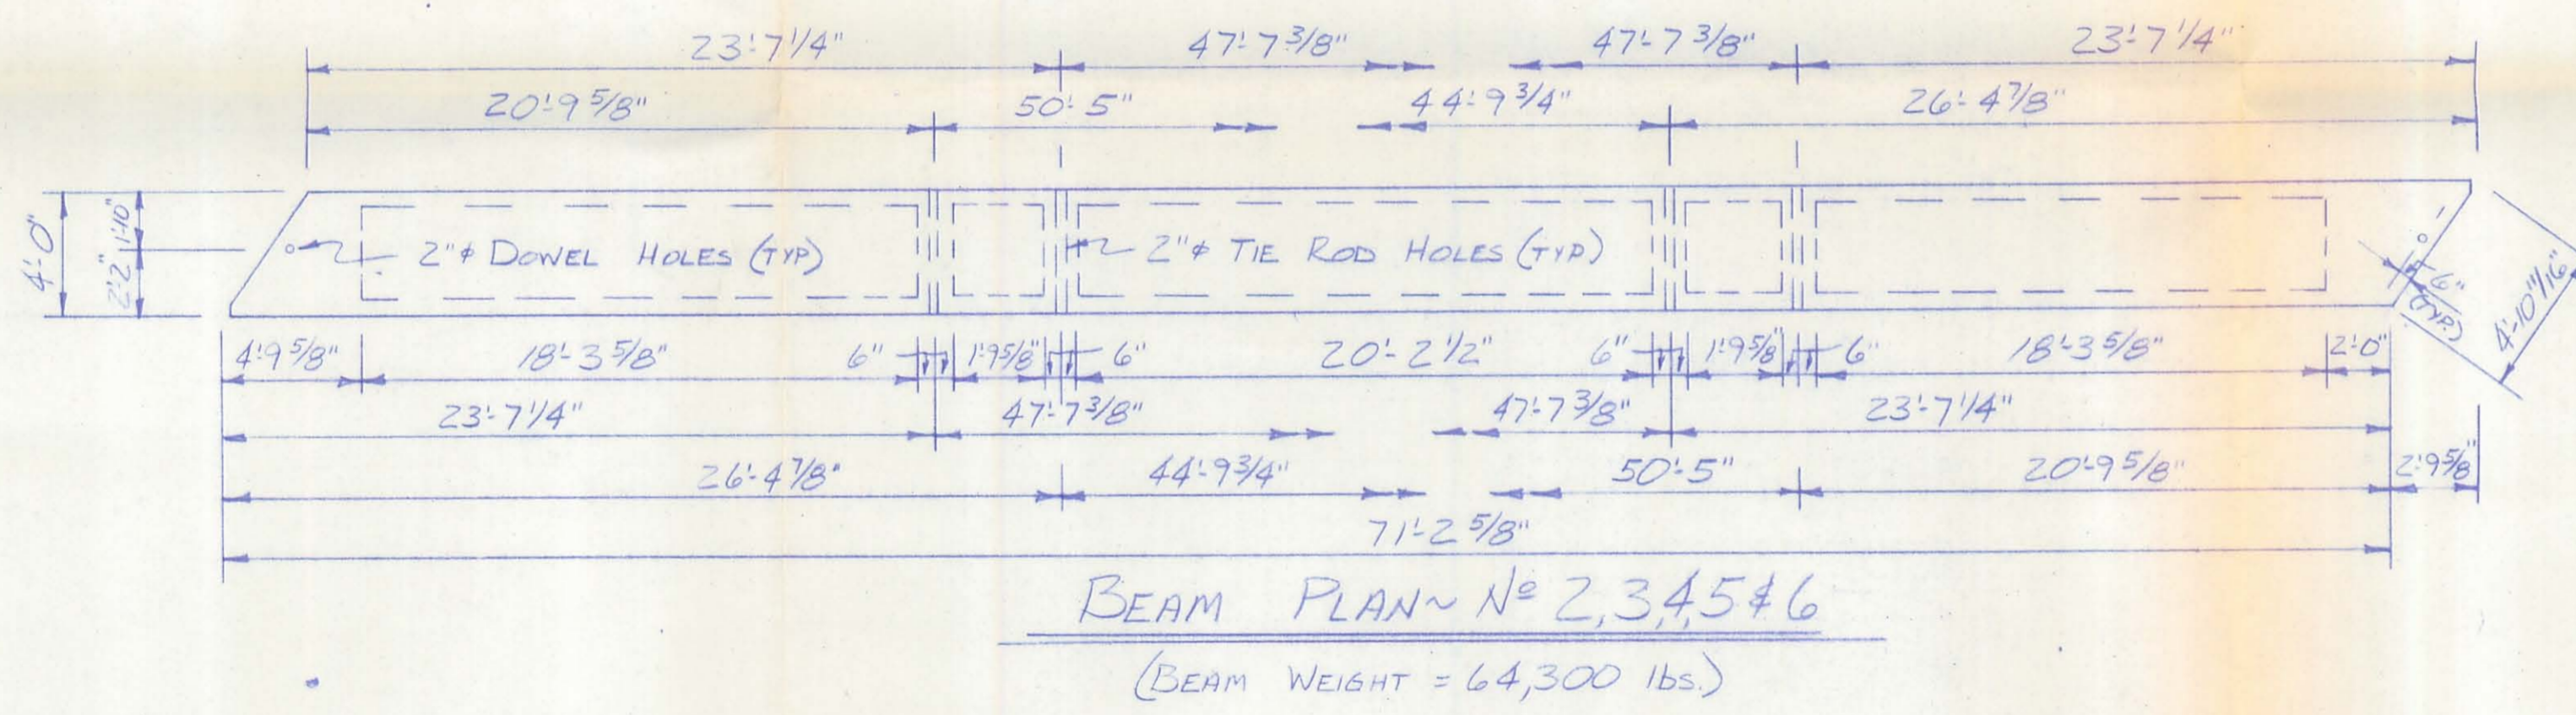 23'-7 1/4" 47'-7 3/8" 47'-7 3/8" 23'-7 1/4"
20'-9 5/8" 50'-5" 44'-9 3/4" 26'-4 7/8"
4'-0"
2'-2" 1'-10"
2"ϕ DOWEL HOLES (TYP) 2"ϕ TIE ROD HOLES (TYP)
6"
(TYP.)
4'-10 11/16"
4'-9 5/8" 18'-3 5/8" 6" 1'-9 5/8" 6" 20'-2 1/2" 6" 1'-9 5/8" 6" 18'-3 5/8" 2'-0"
23'-7 1/4" 47'-7 3/8" 47'-7 3/8" 23'-7 1/4"
26'-4 7/8" 44'-9 3/4" 50'-5" 20'-9 5/8" 2'-9 5/8"
71'-2 5/8"
BEAM PLAN ~ Nº 2,3,4,5 & 6
(BEAM WEIGHT = 64,300 lbs.)